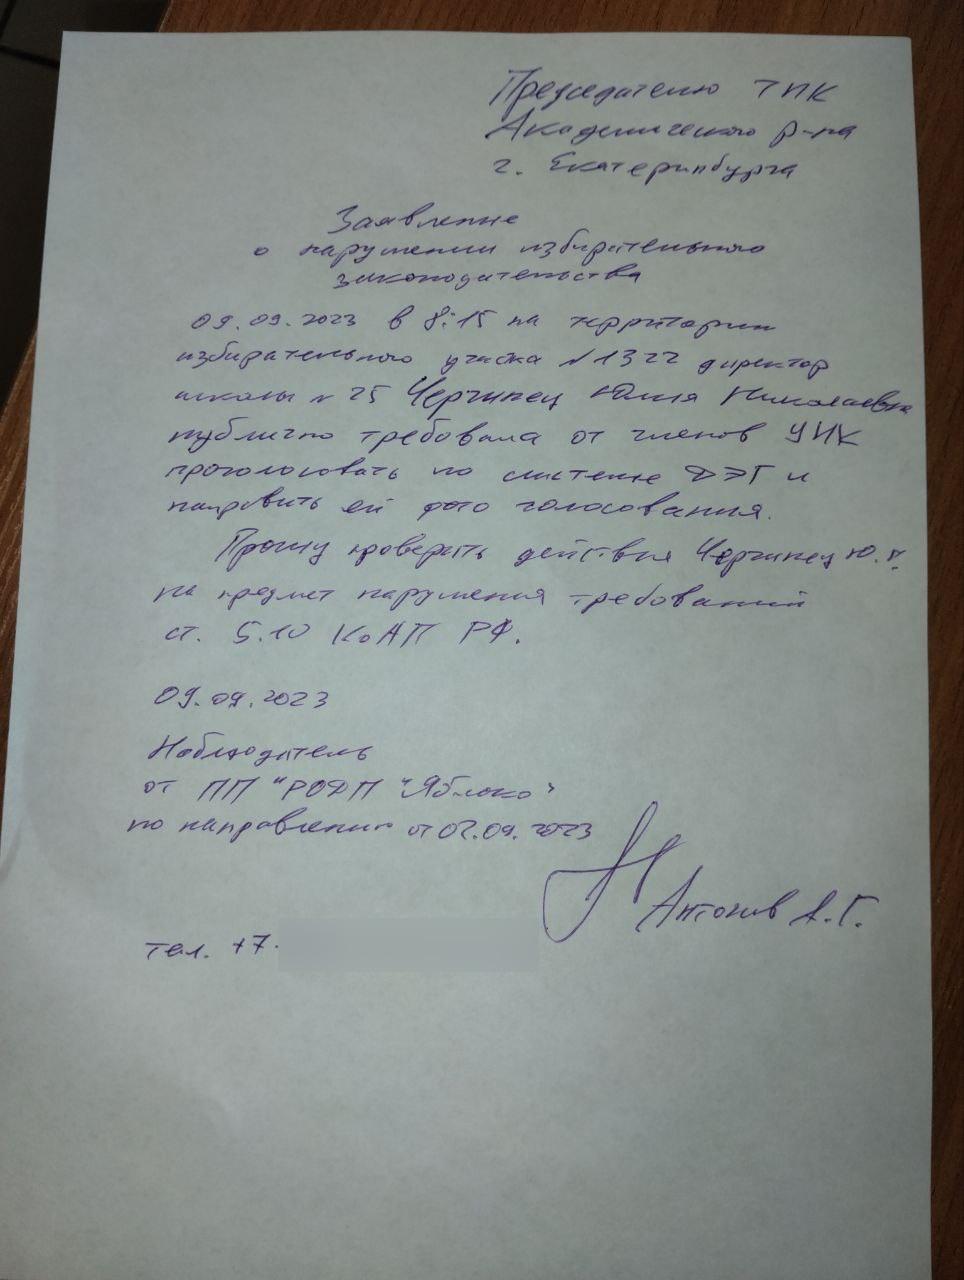 Председателю ТИК
Академического р-на
г. Екатеринбурга
Заявление
о нарушении избирательного
законодательства
09.09.2023 в 8:15 на территории
избирательного участка №1322 директор
школы № 25 Черчинец Юлия Николаевна
публично требовала от членов УИК
проголосовать по системе ДЭГ и
направить ей фото голосования.
Прошу проверить действия Черчинец Ю.Н.
на предмет нарушения требований
ст. 5.10 КоАП РФ.
09.09.2023
Наблюдатель
от ПП "РОДП "Яблоко"
по направлению от 02.09.2023
А.Г.
тел. +7.